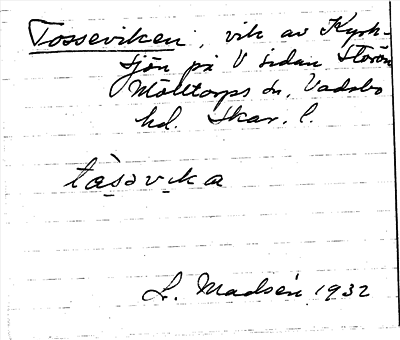 Tosseviken, vik av Kyrk-
sjön på V sidan Storön
Mölltorps sn, Vadsbo
hd. Skar. l.
tåsəvika
L. Madsén 1932